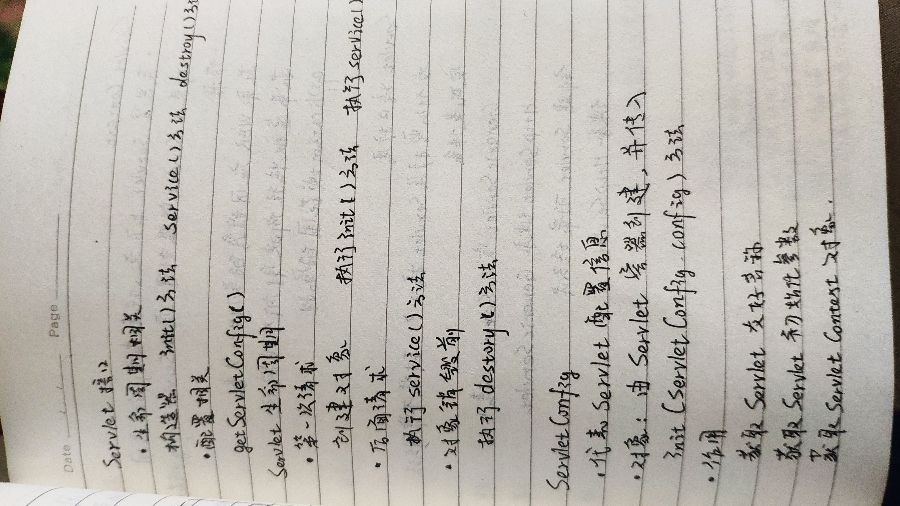 Date
Page
Servlet 接口
· 生命周期相关
构造器 init()方法 service()方法 destroy()方法
· 配置相关
getServletConfig()
Servlet 生命周期
· 第一次请求
创建对象 执行init()方法 执行service()
· 后面请求
执行service()方法
· 对象销毁前
执行destory()方法
ServletConfig
· 代表 Servlet 配置信息
· 对象: 由 Servlet 容器创建, 并传入
init(ServletConfig config)方法
· 作用
获取 Servlet 友好名称
获取 Servlet 初始化参数
获取 Servlet Contest 对象.